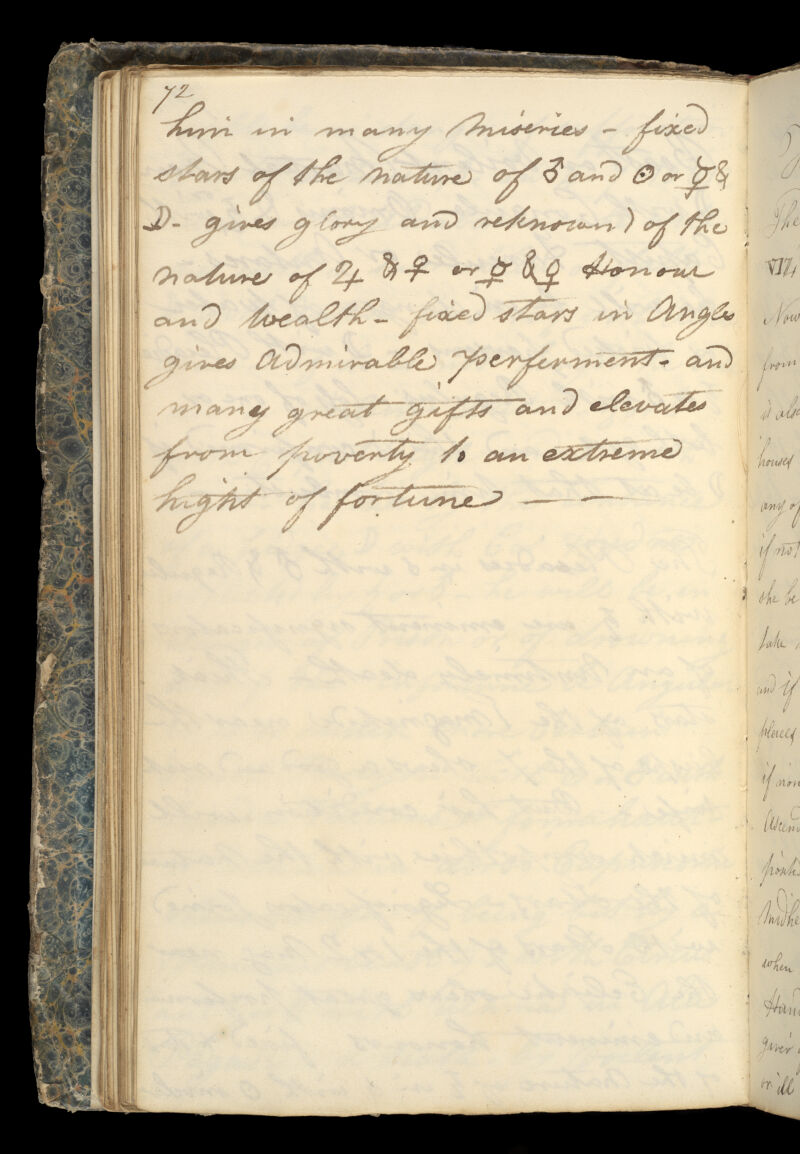 72
him in many Miseries - fixed
stars of the nature of ♂ and ☉ or ☿ &
☽ - gives glory and reknown) of the
nature of ♃ & ♀ or ☿ & ♀ Honour
and Wealth - fixed stars in Angles
gives Admirable perferment - and
many great gifts and elevates
from poverty to an extreme
hight of fortune — —
The
VII
Now
from
is also
houses
any of
if not
she be
take
and if
places
if non
Ascen
Midhe
when
give
or ill